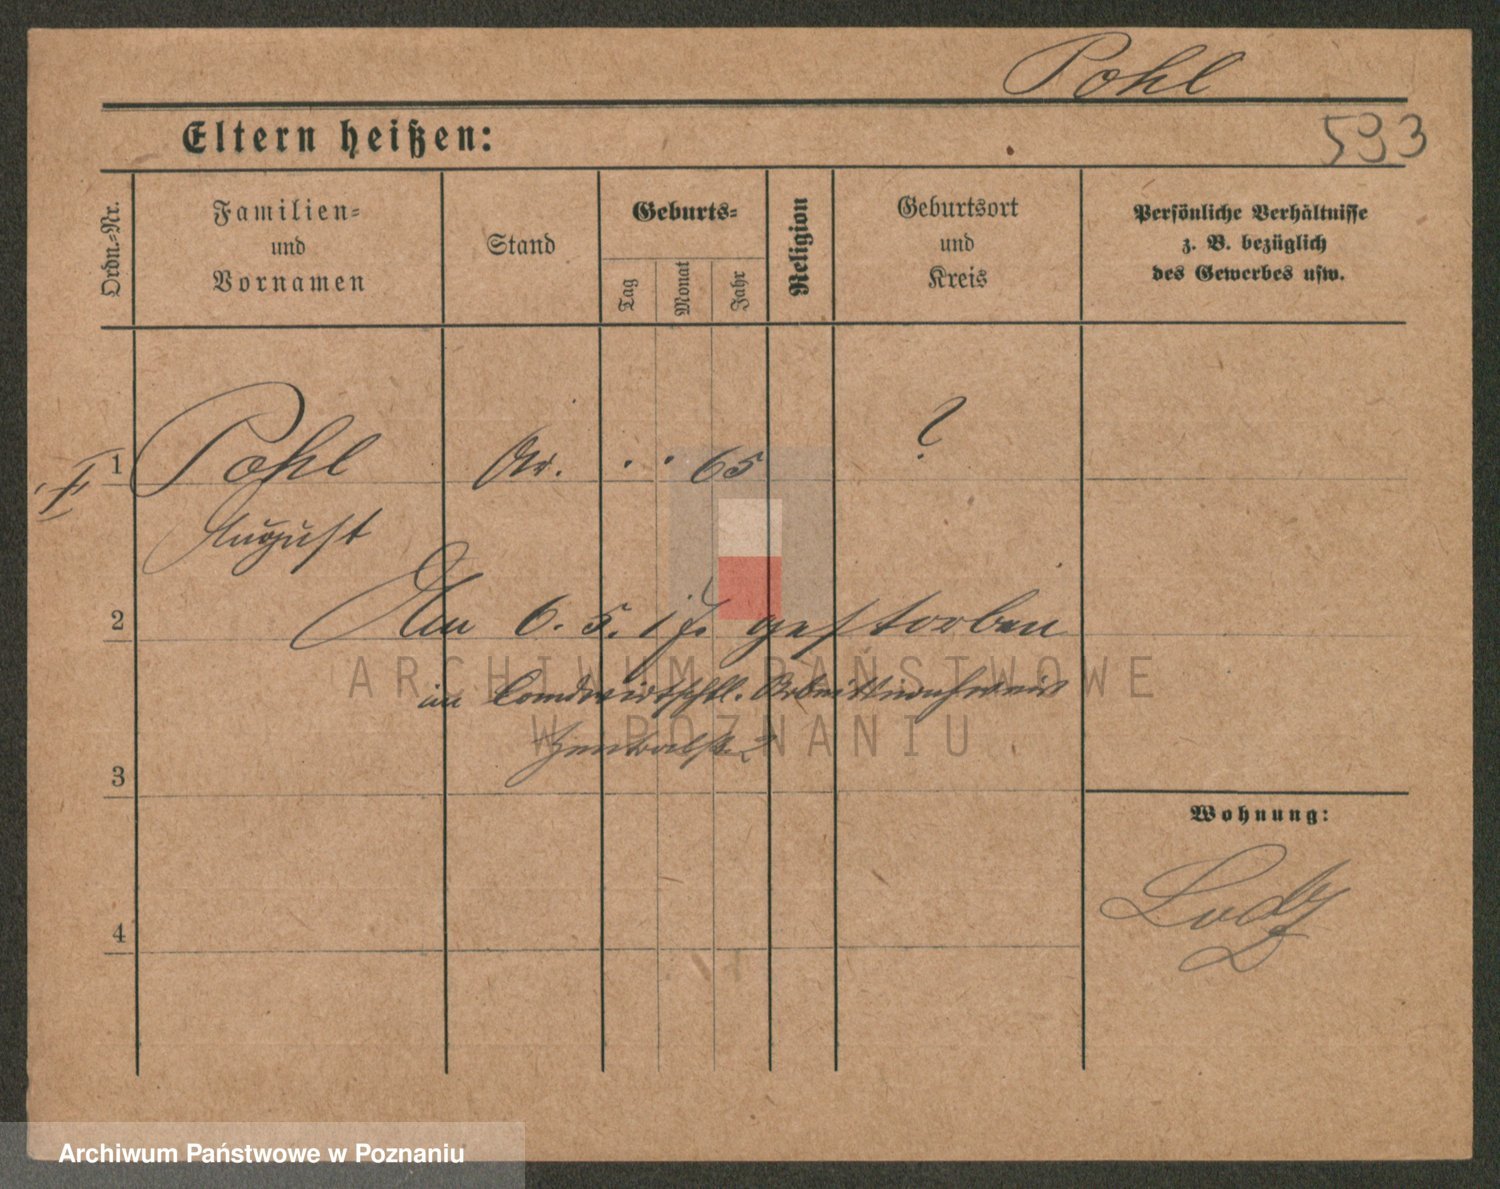 Pohl
593
Eltern heißen:
Ordn.=Nr.
Familien=
und
Vornamen
Stand
Geburts=
Tag
Monat
Jahr
Religion
Geburtsort
und
Kreis
Persönliche Verhältnisse
z. B. bezüglich
des Gewerbes usw.
1
Pohl
Ar. . . 65
?
August
2
Am 6. 5. 17. gestorben
im Landwirtschtl. Arbeitsnachweis
3
Wohnung:
Lodz
4
ARCHIWUM PAŃSTWOWE
W POZNANIU
Archiwum Państwowe w Poznaniu